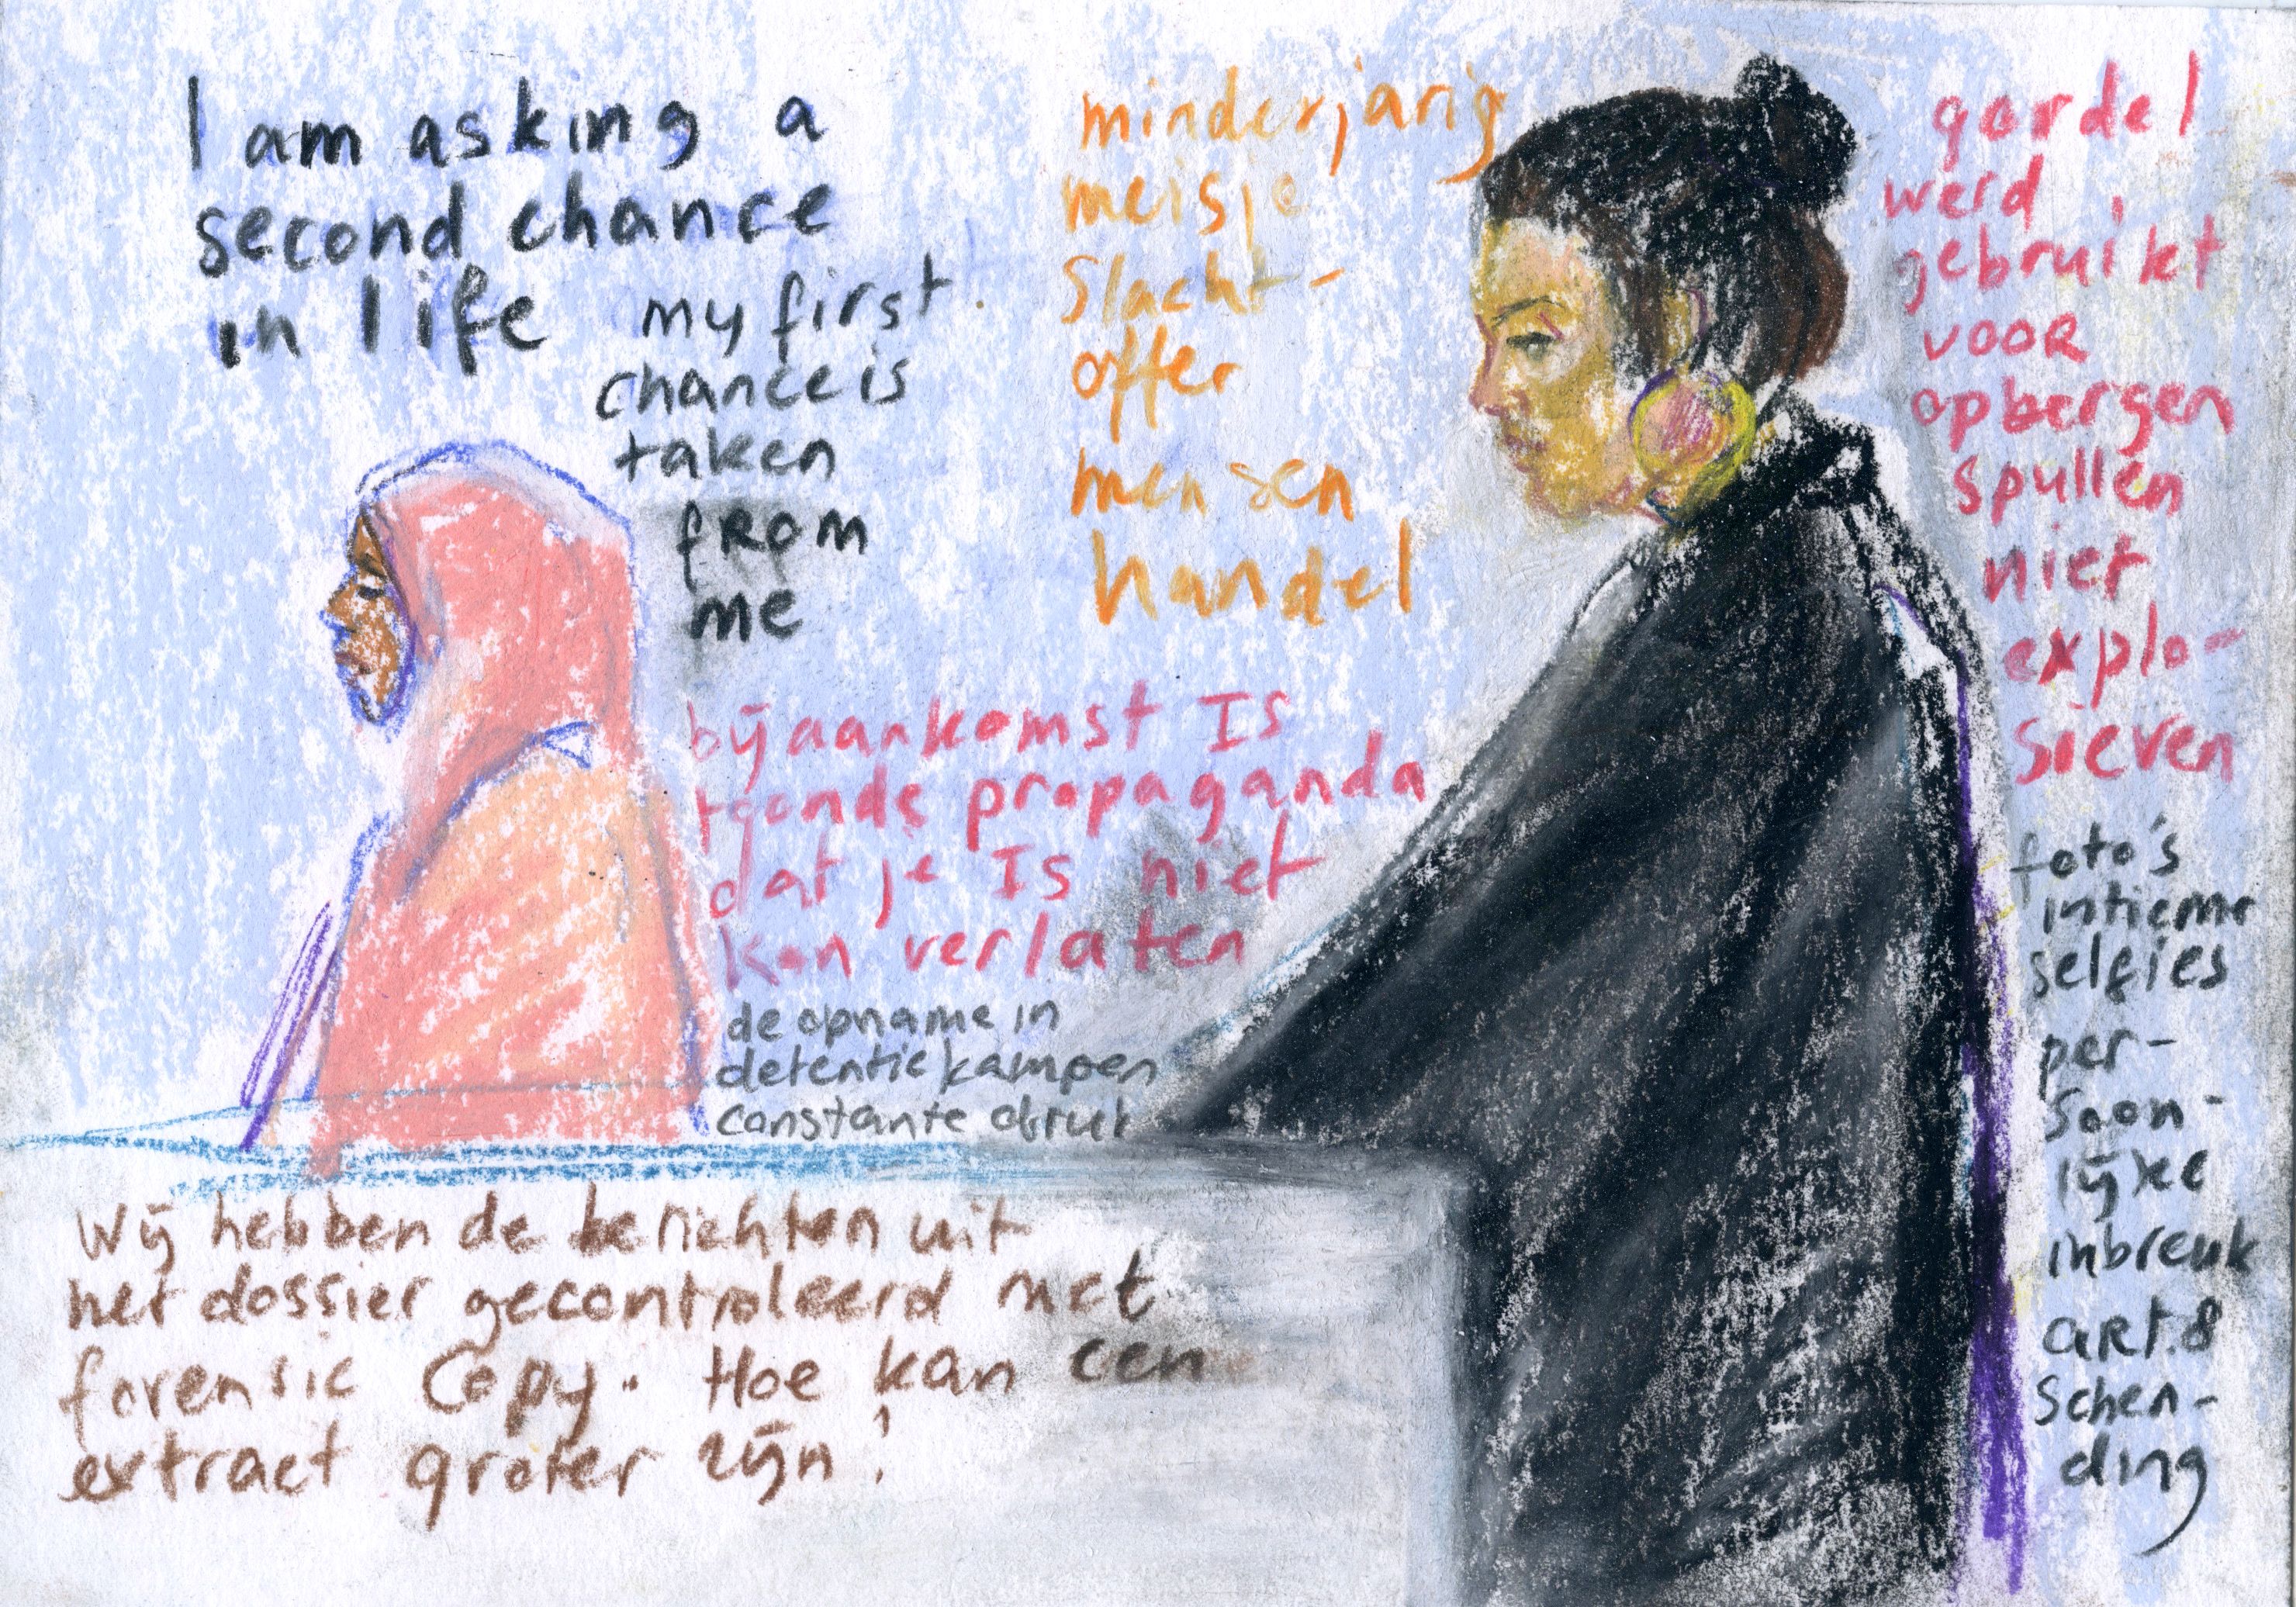 I am asking a
second chance
in life
my first
chance is
taken
from
me
minderjarig
meisje
slacht-
offer
mensen
handel
gordel
werd
gebruikt
voor
opbergen
spullen
niet
explo-
sieven
bij aankomst IS
toonde propaganda
dat je IS niet
kon verlaten
de opname in
detentiekampen
constante druk
foto's
intieme
selfies
per-
soon-
lijke
inbreuk
art. 8
schen-
ding
Wij hebben de berichten uit
het dossier gecontroleerd met
forensic copy. Hoe kan een
extract groter zijn?